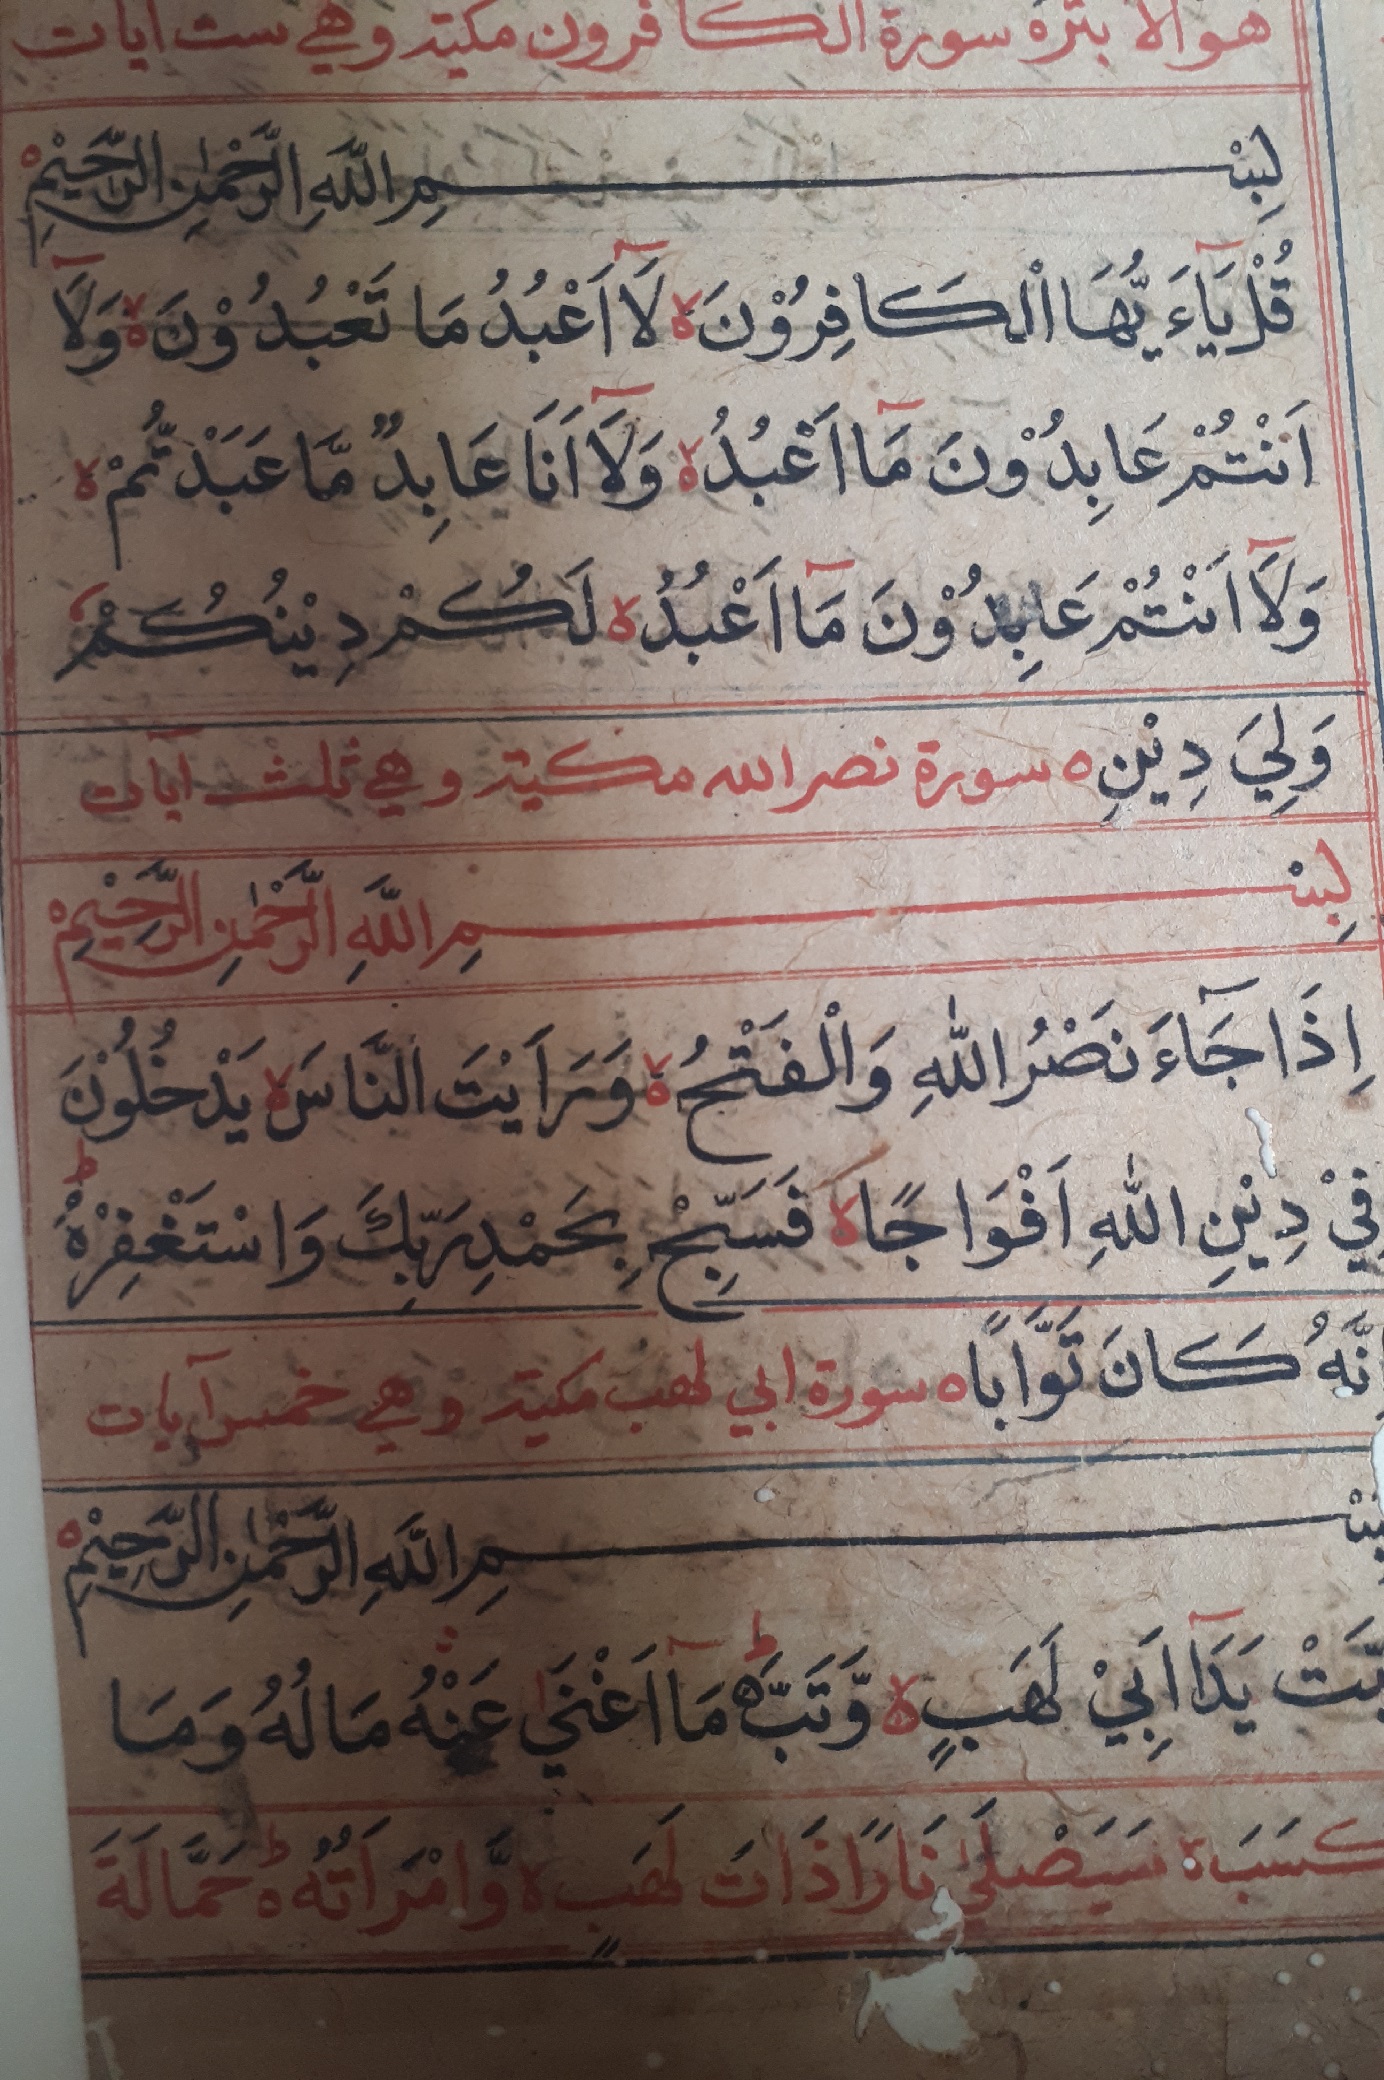 هو الابتره سورة الكافرون مكية وهي ست آيات
بِسْمِ اللَّهِ الرَّحْمٰنِ الرَّحِيْمِ ه
قُلْ يَآءَيُّهَا الْكَافِرُوْنَ ۙ لَآ اَعْبُدُ مَا تَعْبُدُوْنَ ۙ وَلَآ
اَنْتُمْ عَابِدُوْنَ مَآ اَعْبُدُ ۙ وَلَآ اَنَا عَابِدٌ مَّا عَبَدْتُّمْ ۙ
وَلَآ اَنْتُمْ عَابِدُوْنَ مَآ اَعْبُدُ ۙ لَكُمْ دِيْنُكُمْ
وَلِيَ دِيْنِ ه سورة نصر الله مكية وهي ثلث آيات
بِسْمِ اللَّهِ الرَّحْمٰنِ الرَّحِيْمِ
اِذَا جَآءَ نَصْرُ اللّٰهِ وَالْفَتْحُ ۙ وَرَاَيْتَ النَّاسَ ۙ يَدْخُلُوْنَ
فِيْ دِيْنِ اللّٰهِ اَفْوَاجًا ۙ فَسَبِّحْ بِحَمْدِ رَبِّكَ وَاسْتَغْفِرْهُ ط
اِنَّهُ كَانَ تَوَّابًا ه سورة ابي لهب مكية وهي خمس آيات
بِسْمِ اللَّهِ الرَّحْمٰنِ الرَّحِيْمِ ه
تَبَّتْ يَدَآ اَبِيْ لَهَبٍ ۙ وَّتَبَّ ه ط مَآ اَغْنَي عَنْهُ مَالُهُ وَمَا
كَسَبَ ة سَيَصْلَيٰ نَارًا ذَاتَ لَهَبٍ ة وَّامْرَاَتُهُ ه ط حَمَّالَةَ